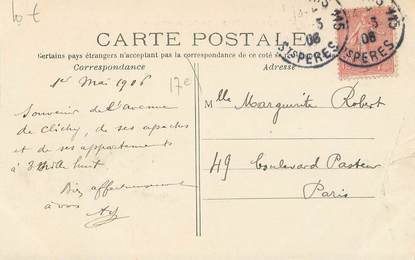 10 €
CARTE POSTALE
Certains pays étrangers n'acceptent pas la correspondance de ce côté
Correspondance
Adresse
1er Mai 1906
17e
Souvenir de l'avenue
de Clichy, de ses apaches
et de ses appartements
à huit
Bien affectueusement
à vous
Mlle Marguerite Robert
49 boulevard Pasteur
Paris
115
06
STS PERES
115
06
STS PERES